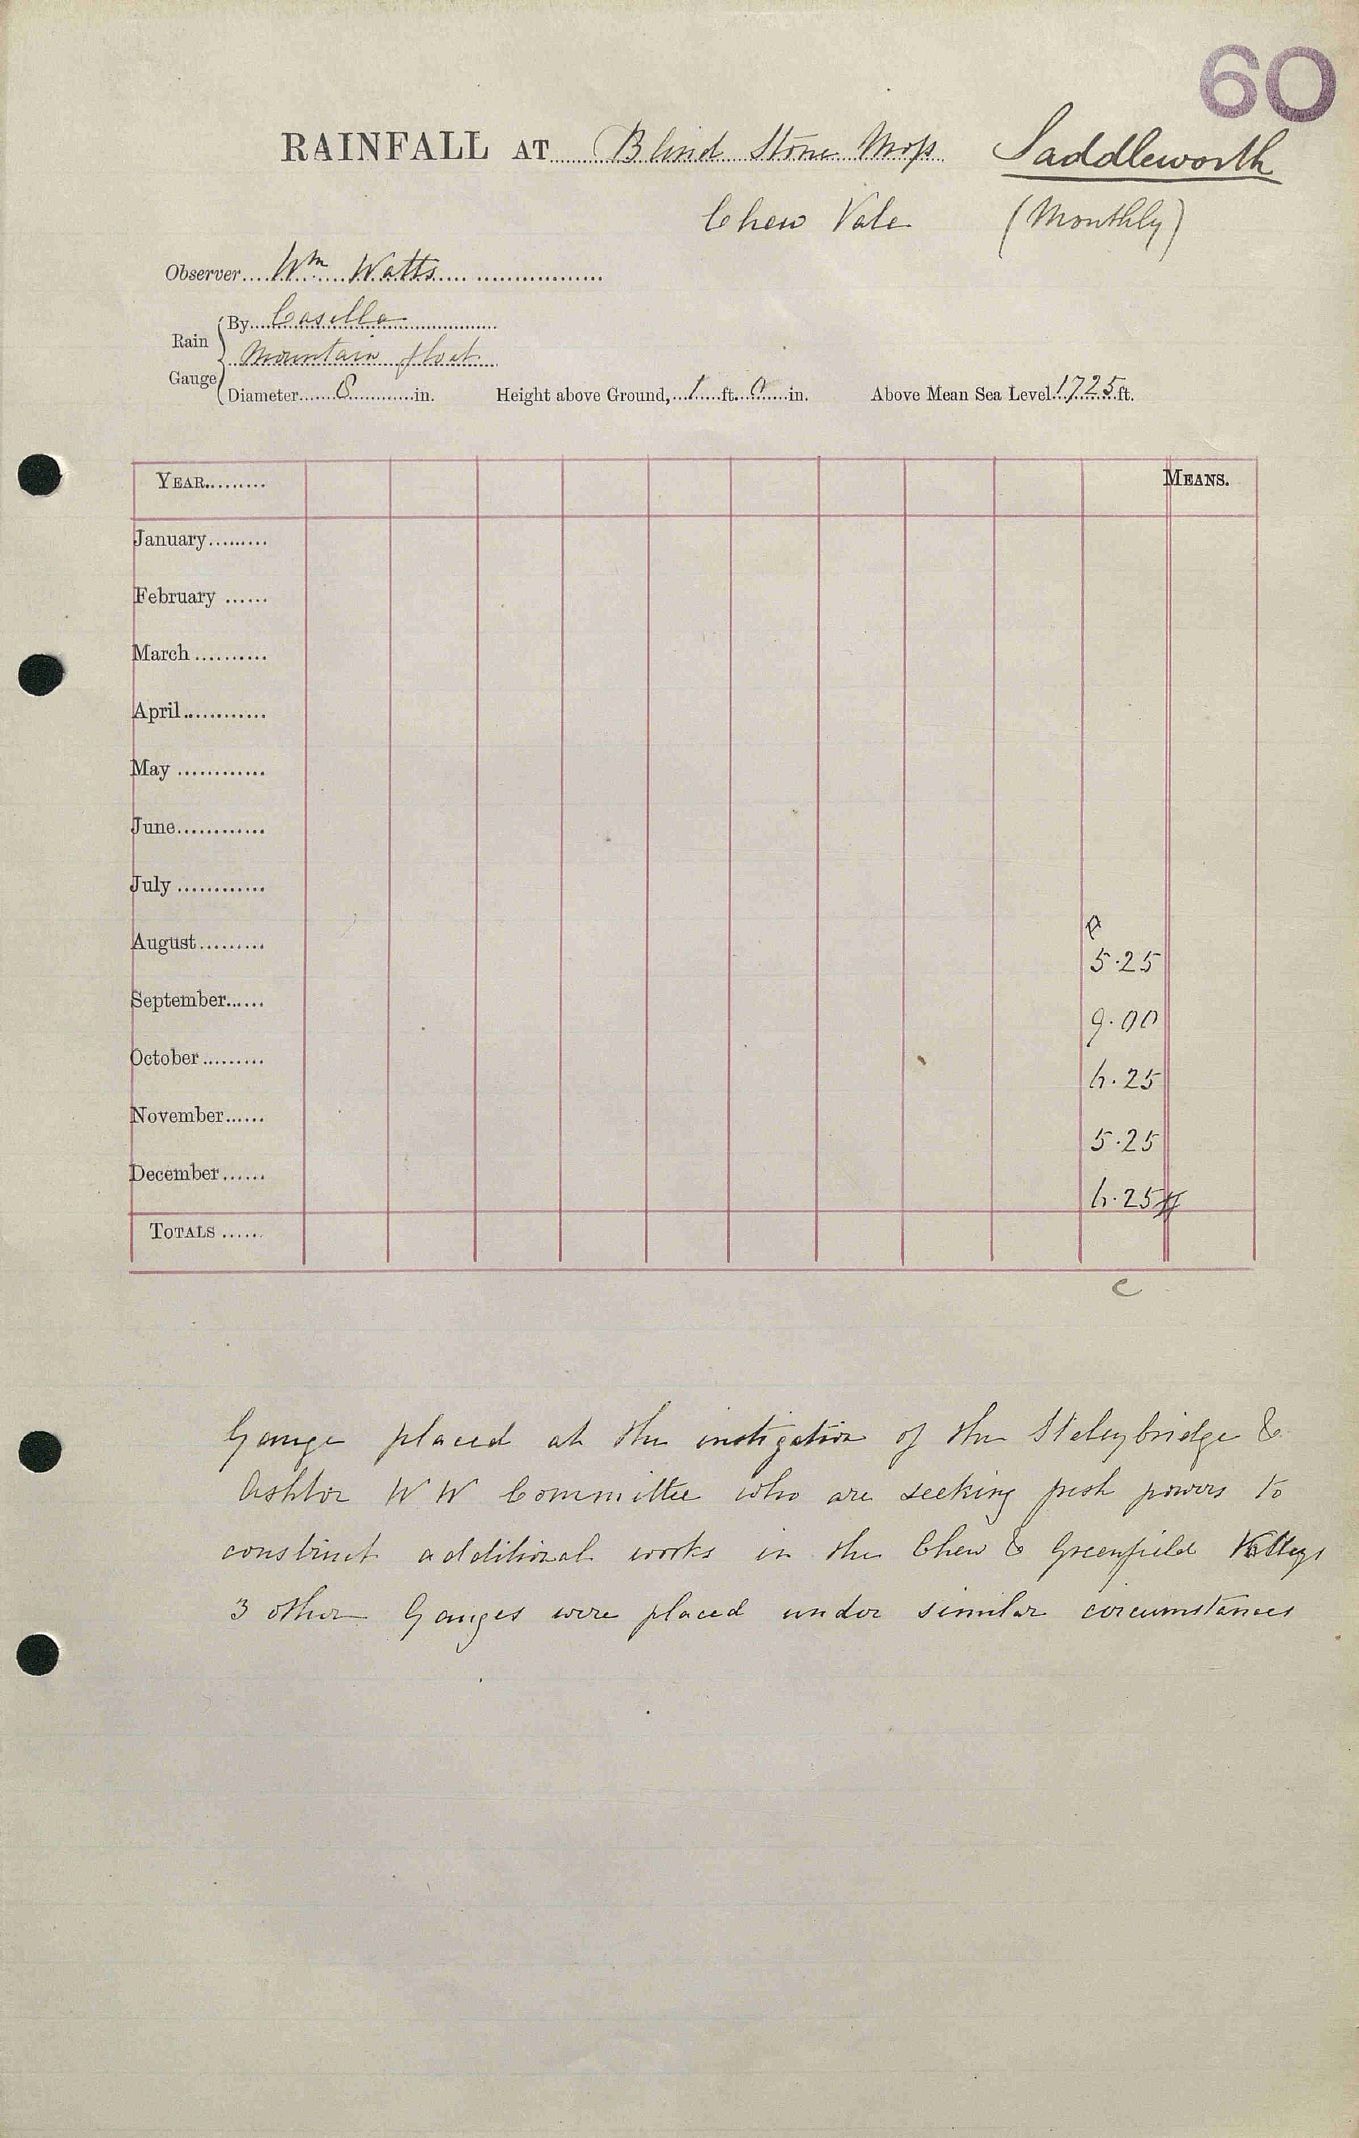 60
RAINFALL AT Blind Stone Moss Saddleworth
Chew Vale (Monthly)
Observer Wm Watts
Rain Gauge
By Casella
Mountain float
Diameter 8 in. Height above Ground, 1 ft. 0 in. Above Mean Sea Level 1725 ft.
YEAR MEANS.
January
February
March
April
May
June
July
August 5.25
September 9.00
October 4.25
November 5.25
December 4.25
TOTALS
C
Gauge placed at the instigation of the Staleybridge &
Ashton W W Committee who are seeking fresh powers to
construct additional works in the Chew & Greenfield Valleys
3 other Gauges were placed under similar circumstances